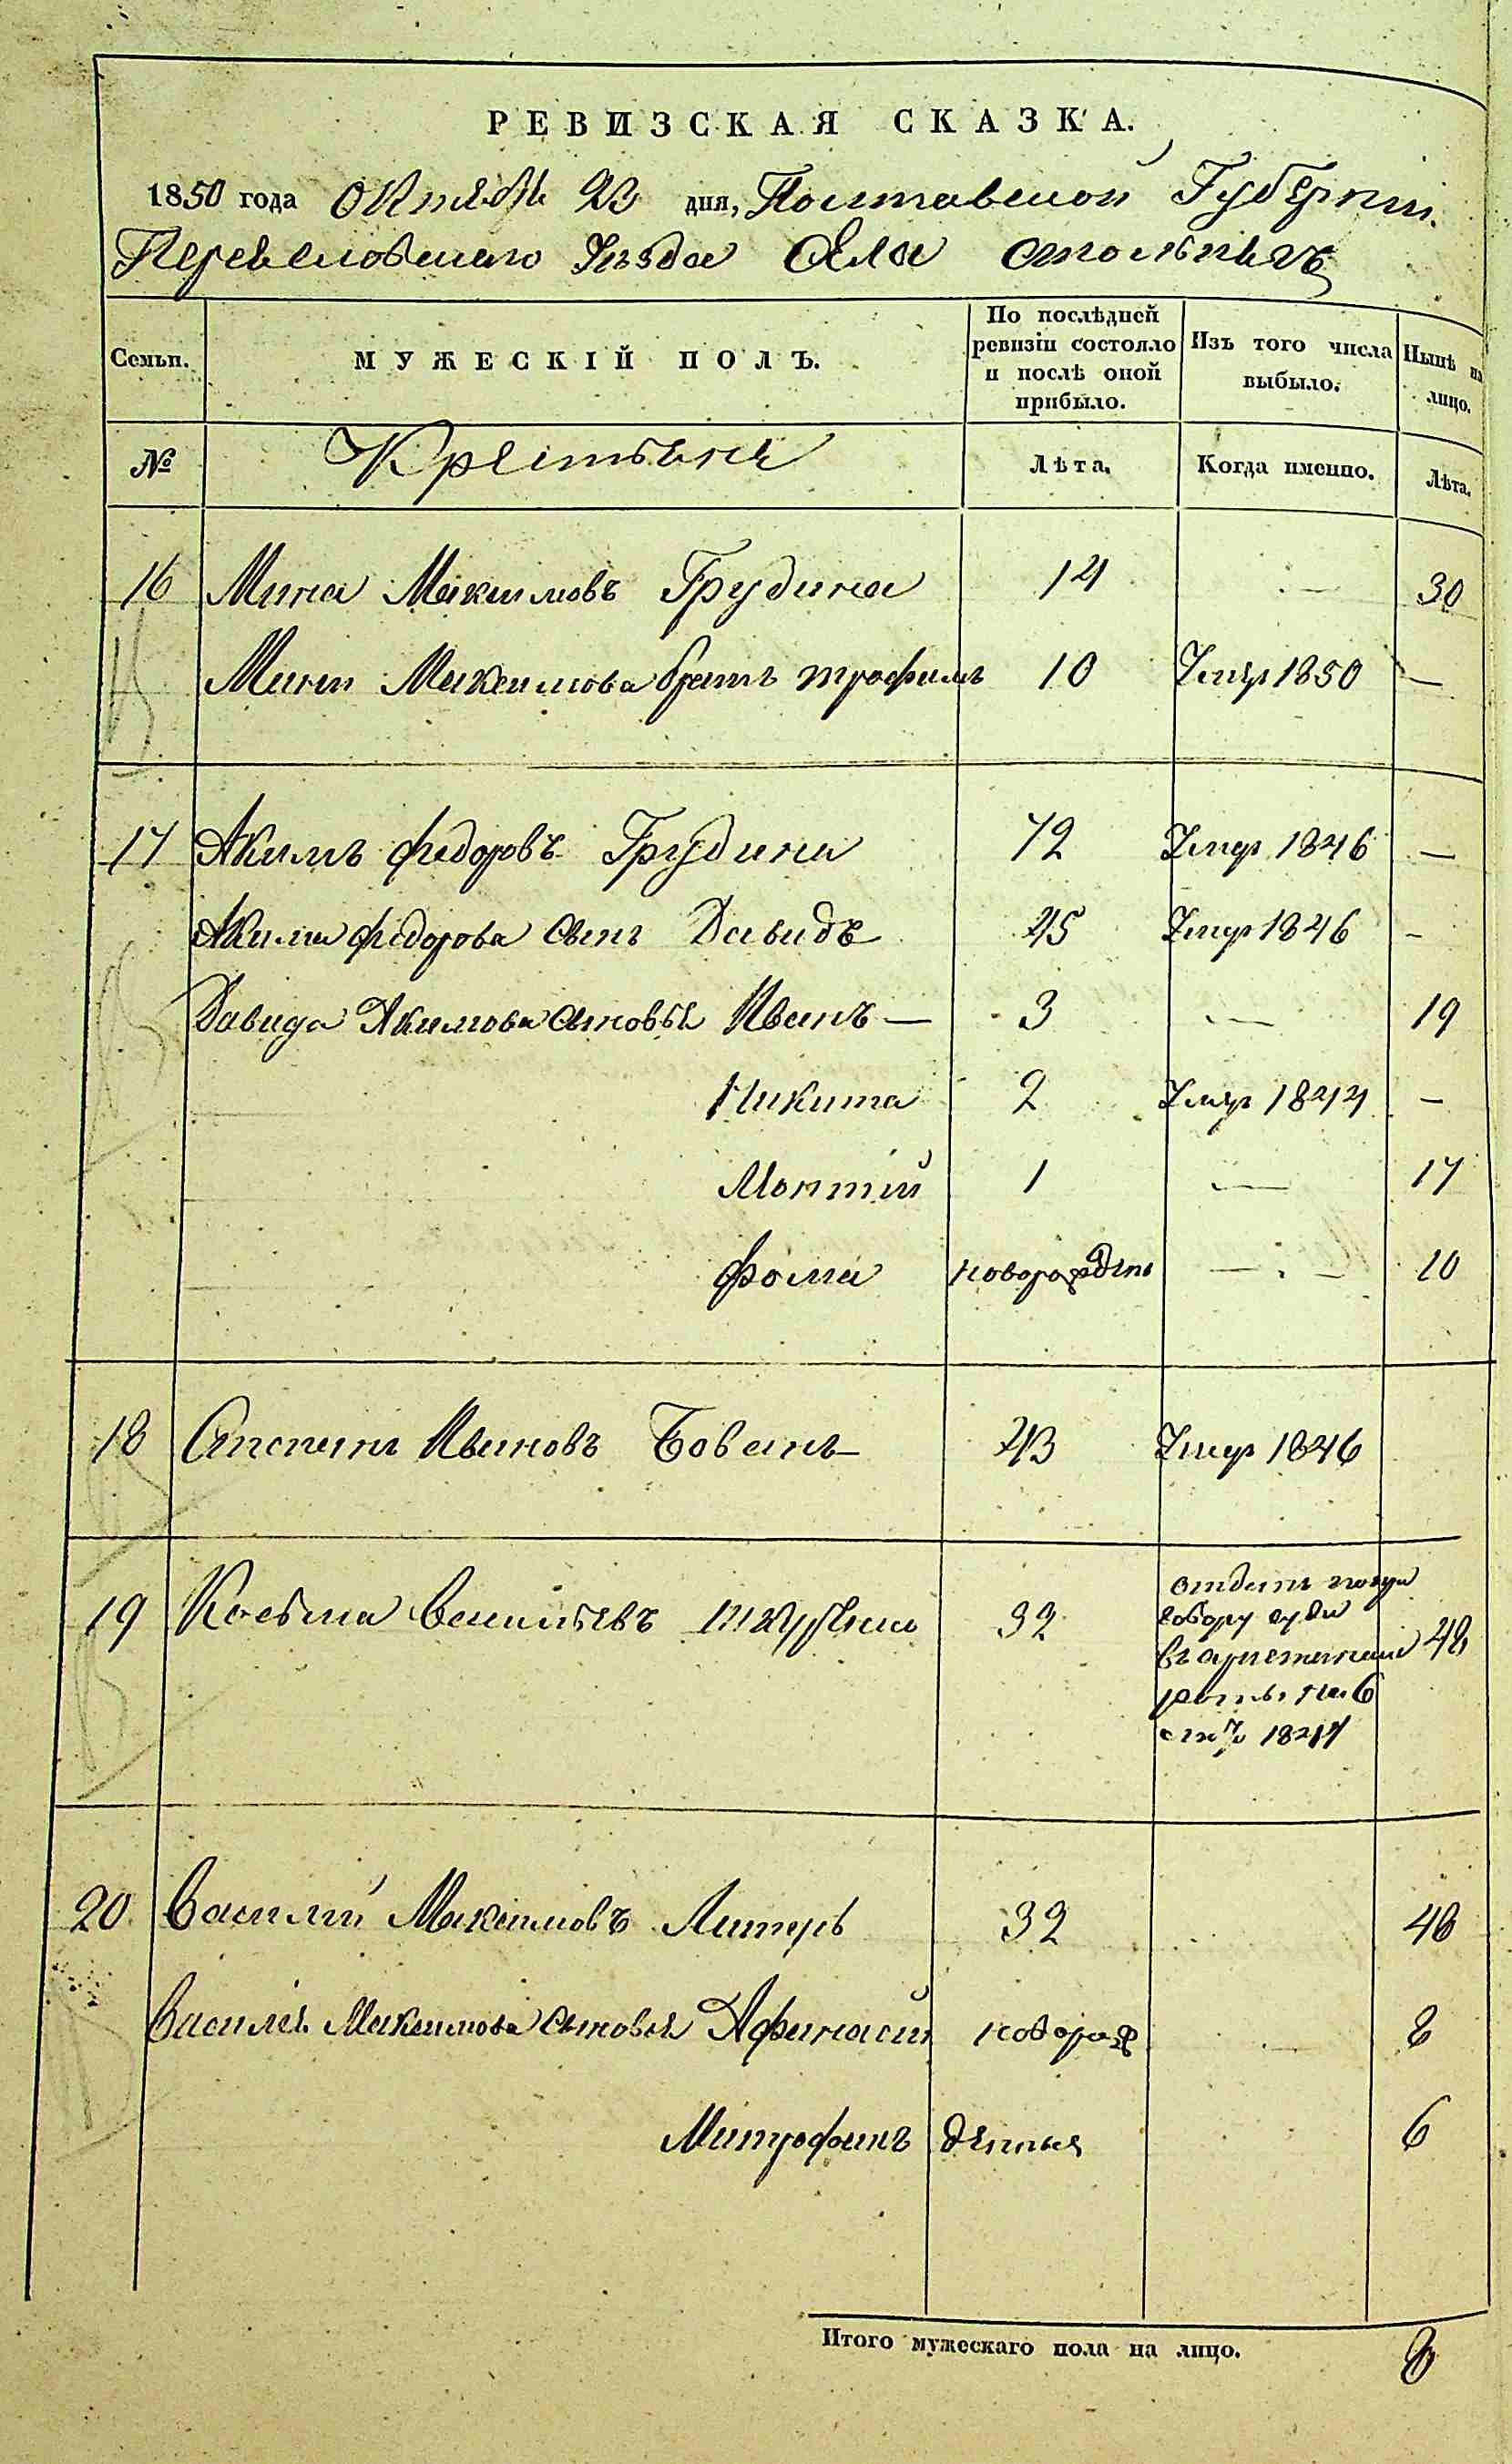 РЕВИЗСКАЯ СКАЗКА.
1850 года Октября 23 дня, Полтавской Губернии.
Переяславскаго Уезда Села
Семьи. МУЖЕСКІЙ ПОЛЪ. По послѣдней ревизіи состояло и послѣ оной прибыло. Изъ того числа выбыло. Нынѣ на лицо.
№ Крестьяне Лѣта. Когда именно. Лѣта.
16 Мина Максимовъ Грудина 14 — 30
Мины Максимова братъ Трофимъ 10 Умер 1850 —
17 Акимъ Федоровъ Грудина 72 Умер 1846 —
Акима Федорова сынъ Давидъ 45 Умер 1846 —
Давида Акимова сыновья Иванъ — 3 — 19
Никита 2 Умер 1844 —
Моктій 1 — 17
Фома новорожден — 10
18 Иванов 43 Умер 1846
19 Косьма Васильевъ 32 48
отдан
суда
въ
роты на 6
1847
20 Василий Максимовъ Литеръ 32 48
Василия Максимова сыновья Афанасий новорож 8
Митрофанъ денные 6
Итого мужескаго пола на лицо. 8